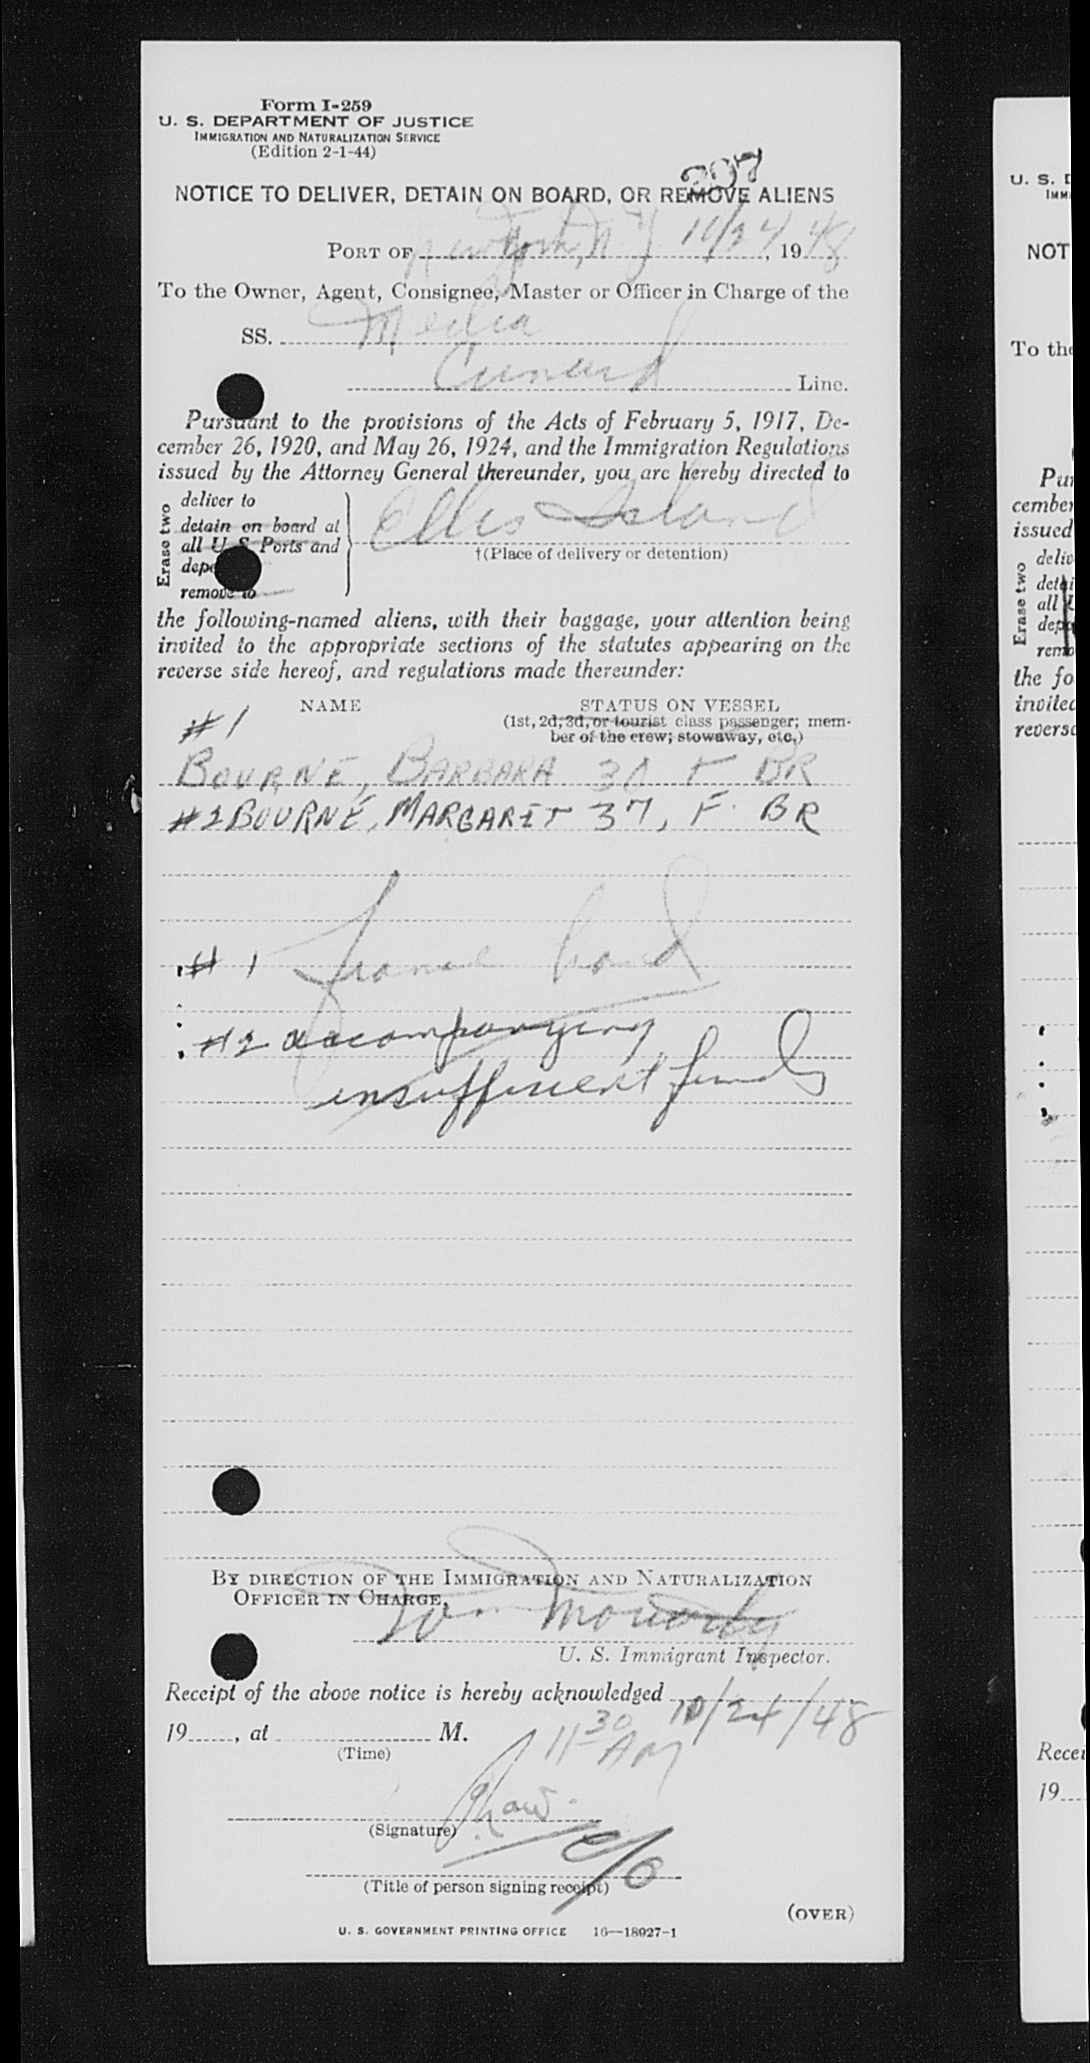 Form I-259
U. S. DEPARTMENT OF JUSTICE
IMMIGRATION AND NATURALIZATION SERVICE
(Edition 2-1-44)
207
NOTICE TO DELIVER, DETAIN ON BOARD, OR REMOVE ALIENS
PORT OF New York, N Y 10/24, 1948
To the Owner, Agent, Consignee, Master or Officer in Charge of the
SS. Media
Cunard Line.
Pursuant to the provisions of the Acts of February 5, 1917, De-
cember 26, 1920, and May 26, 1924, and the Immigration Regulations
issued by the Attorney General thereunder, you are hereby directed to
Erase two
deliver to
detain on board at
all U S Ports and
depo
remove to
Ellis Island
†(Place of delivery or detention)
the following-named aliens, with their baggage, your attention being
invited to the appropriate sections of the statutes appearing on the
reverse side hereof, and regulations made thereunder:
NAME STATUS ON VESSEL
(1st, 2d, 3d, or tourist class passenger; mem-
ber of the crew; stowaway, etc.)
#1
BOURNE, BARBARA 30 F BR
#2 BOURNE, MARGARET 37, F. BR
#1 bond
#2 accompanying
insufficient funds
BY DIRECTION OF THE IMMIGRATION AND NATURALIZATION
OFFICER IN CHARGE,
U. S. Immigrant Inspector.
Receipt of the above notice is hereby acknowledged 10/24/48
19, at M. 11 30 AM
(Time)
Shaw
(Signature)
C/O
(Title of person signing receipt)
(OVER)
U. S. GOVERNMENT PRINTING OFFICE 16—18927-1
U. S. D
IMMI
NOT
To the
Pur
cember
issued
Erase two
deliv
detai
all U
depo
remo
the fo
invited
reverse
Recei
19